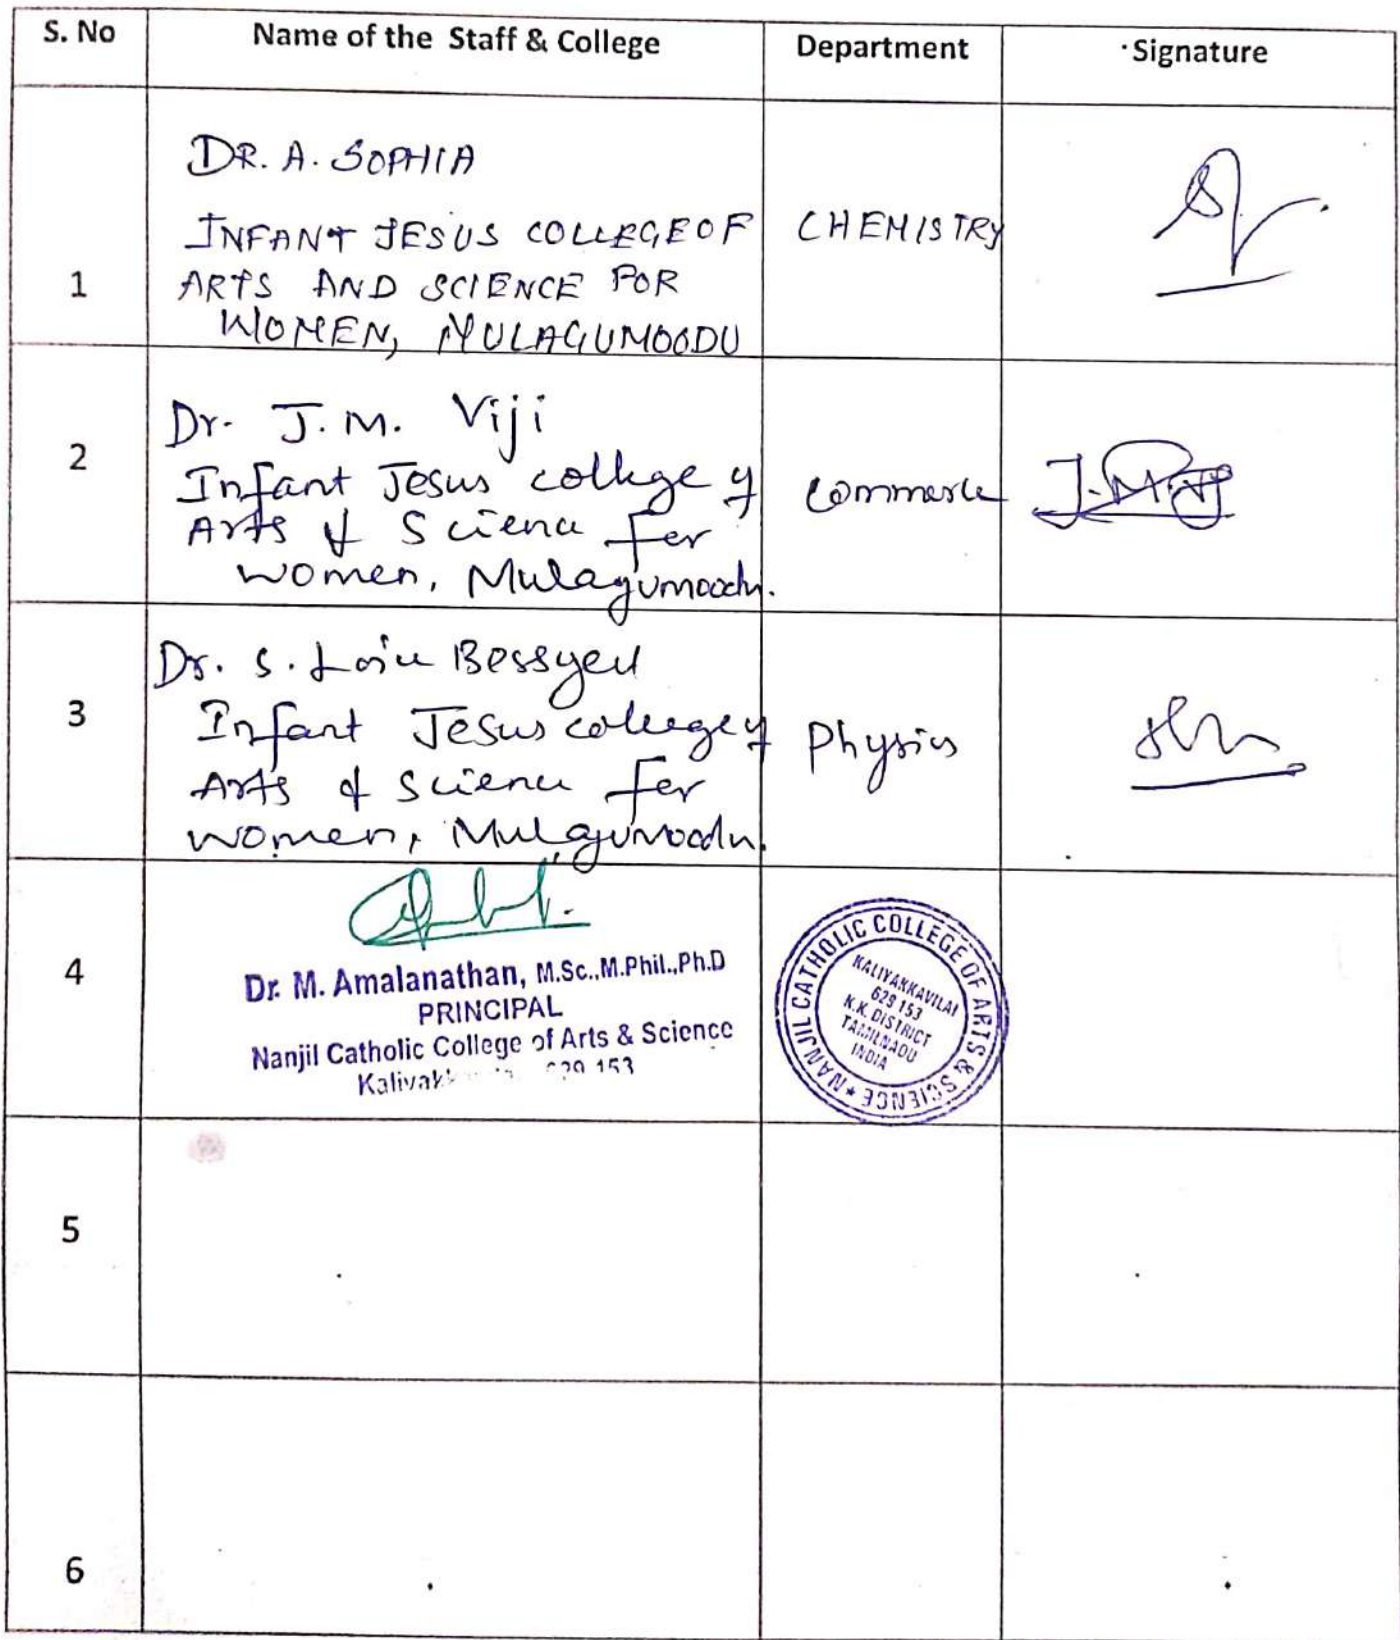 S. No Name of the Staff & College Department Signature
DR. A. SOPHIA
INFANT JESUS COLLEGE OF CHEMISTRY
1 ARTS AND SCIENCE FOR
WOMEN, MULAGUMOODU
Dr. J. M. Viji
2 Infant Jesus college of commerce
Arts & Science for
women, Mulagumoodu.
Dr. S. Bessy
3 Infant Jesus college of Physics
Arts & Science for
women, Mulagumoodu.
4
Dr. M. Amalanathan, M.Sc.,M.Phil.,Ph.D
PRINCIPAL
Nanjil Catholic College of Arts & Science
629 153
NANJIL CATHOLIC COLLEGE OF ARTS & SCIENCE
KALIYAKKAVILAI
629 153
K.K. DISTRICT
TAMILNADU
INDIA
5
6